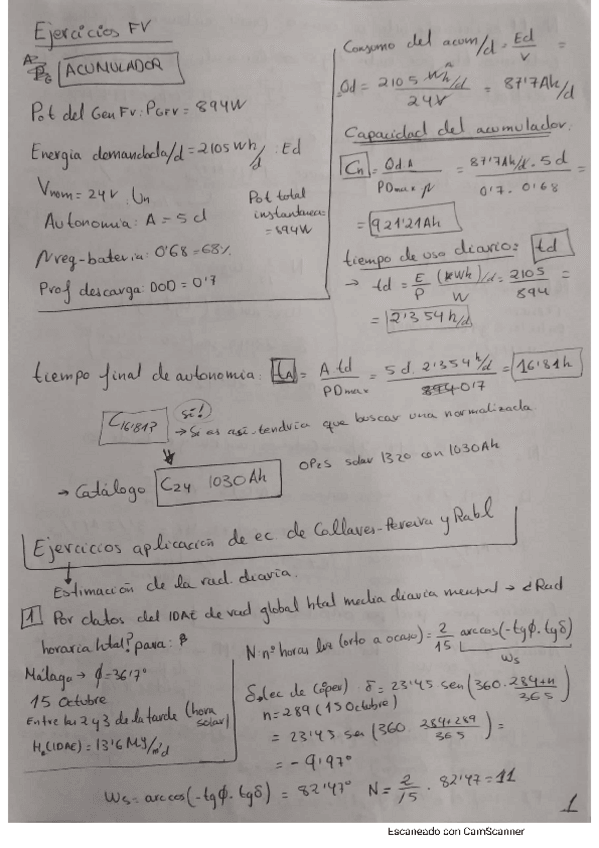 Ejercicios FV
ACUMULADOR
Pot del Gen FV: PGFV = 894W
Energia demandada/d = 2105 Wh/d : Ed
Vnom = 24V. Un
Autonomía: A = 5 d
Pot total instantanea = 894W
ηreg-bateria: 0'68 = 68%
Prof descarga: DOD = 0'7
Consumo del acum/d = Ed/V =
Qd = 2105 Wh/d / 24V = 87'7 Ah/d
Capacidad del acumulador:
Cn = Qd A / PDmax η = 87'7 Ah/d . 5 d / 0'7 . 0'68 =
= 921'21 Ah
tiempo de uso diario: td
→ td = E/P (Wh)/d / W = 2105/894 =
= 2'354 h/d
tiempo final de autonomia: tA = A td / PDmax = 5 d. 2'354 h/d / 0'7 = 16'81 h
C16'81? si!
→ Si es asi tendria que buscar una normalizada.
→ Catálogo C24 1030Ah OPzS solar 1320 con 1030Ah
Ejercicios aplicación de ec. de Collares-Pereira y Rabl
Estimación de la rad. diaria.
1 Por datos del IDAE de rad global htal media diaria mensual → ¿Rad
horaria htal? para:
Málaga → ϕ = 36'7°
15 Octubre
Entre las 2 y 3 de la tarde (hora solar)
H0 (IDAE) = 13'6 MJ/m²d
N: nº horas luz (orto a ocaso) = 2/15 arccos(-tgϕ.tgδ)
ws
δ (ec de Cooper) δ = 23'45 sen(360. 284+n/365)
n = 289 (15 Octubre)
= 23'45 sen(360. 284+289/365) =
= -9'97°
Ws = arccos(-tgϕ.tgδ) = 82'47° N = 2/15 . 82'47 = 11
1
Escaneado con CamScanner